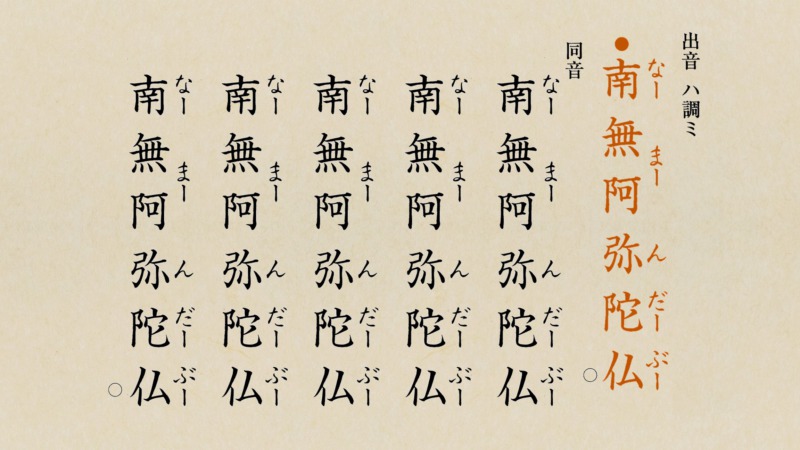 出音 ハ調ミ
●南無阿弥陀仏○
なーまーんだーぶー
同音
南無阿弥陀仏
なーまーんだーぶー
南無阿弥陀仏
なーまーんだーぶー
南無阿弥陀仏
なーまーんだーぶー
南無阿弥陀仏
なーまーんだーぶー
南無阿弥陀仏○
なーまーんだーぶー